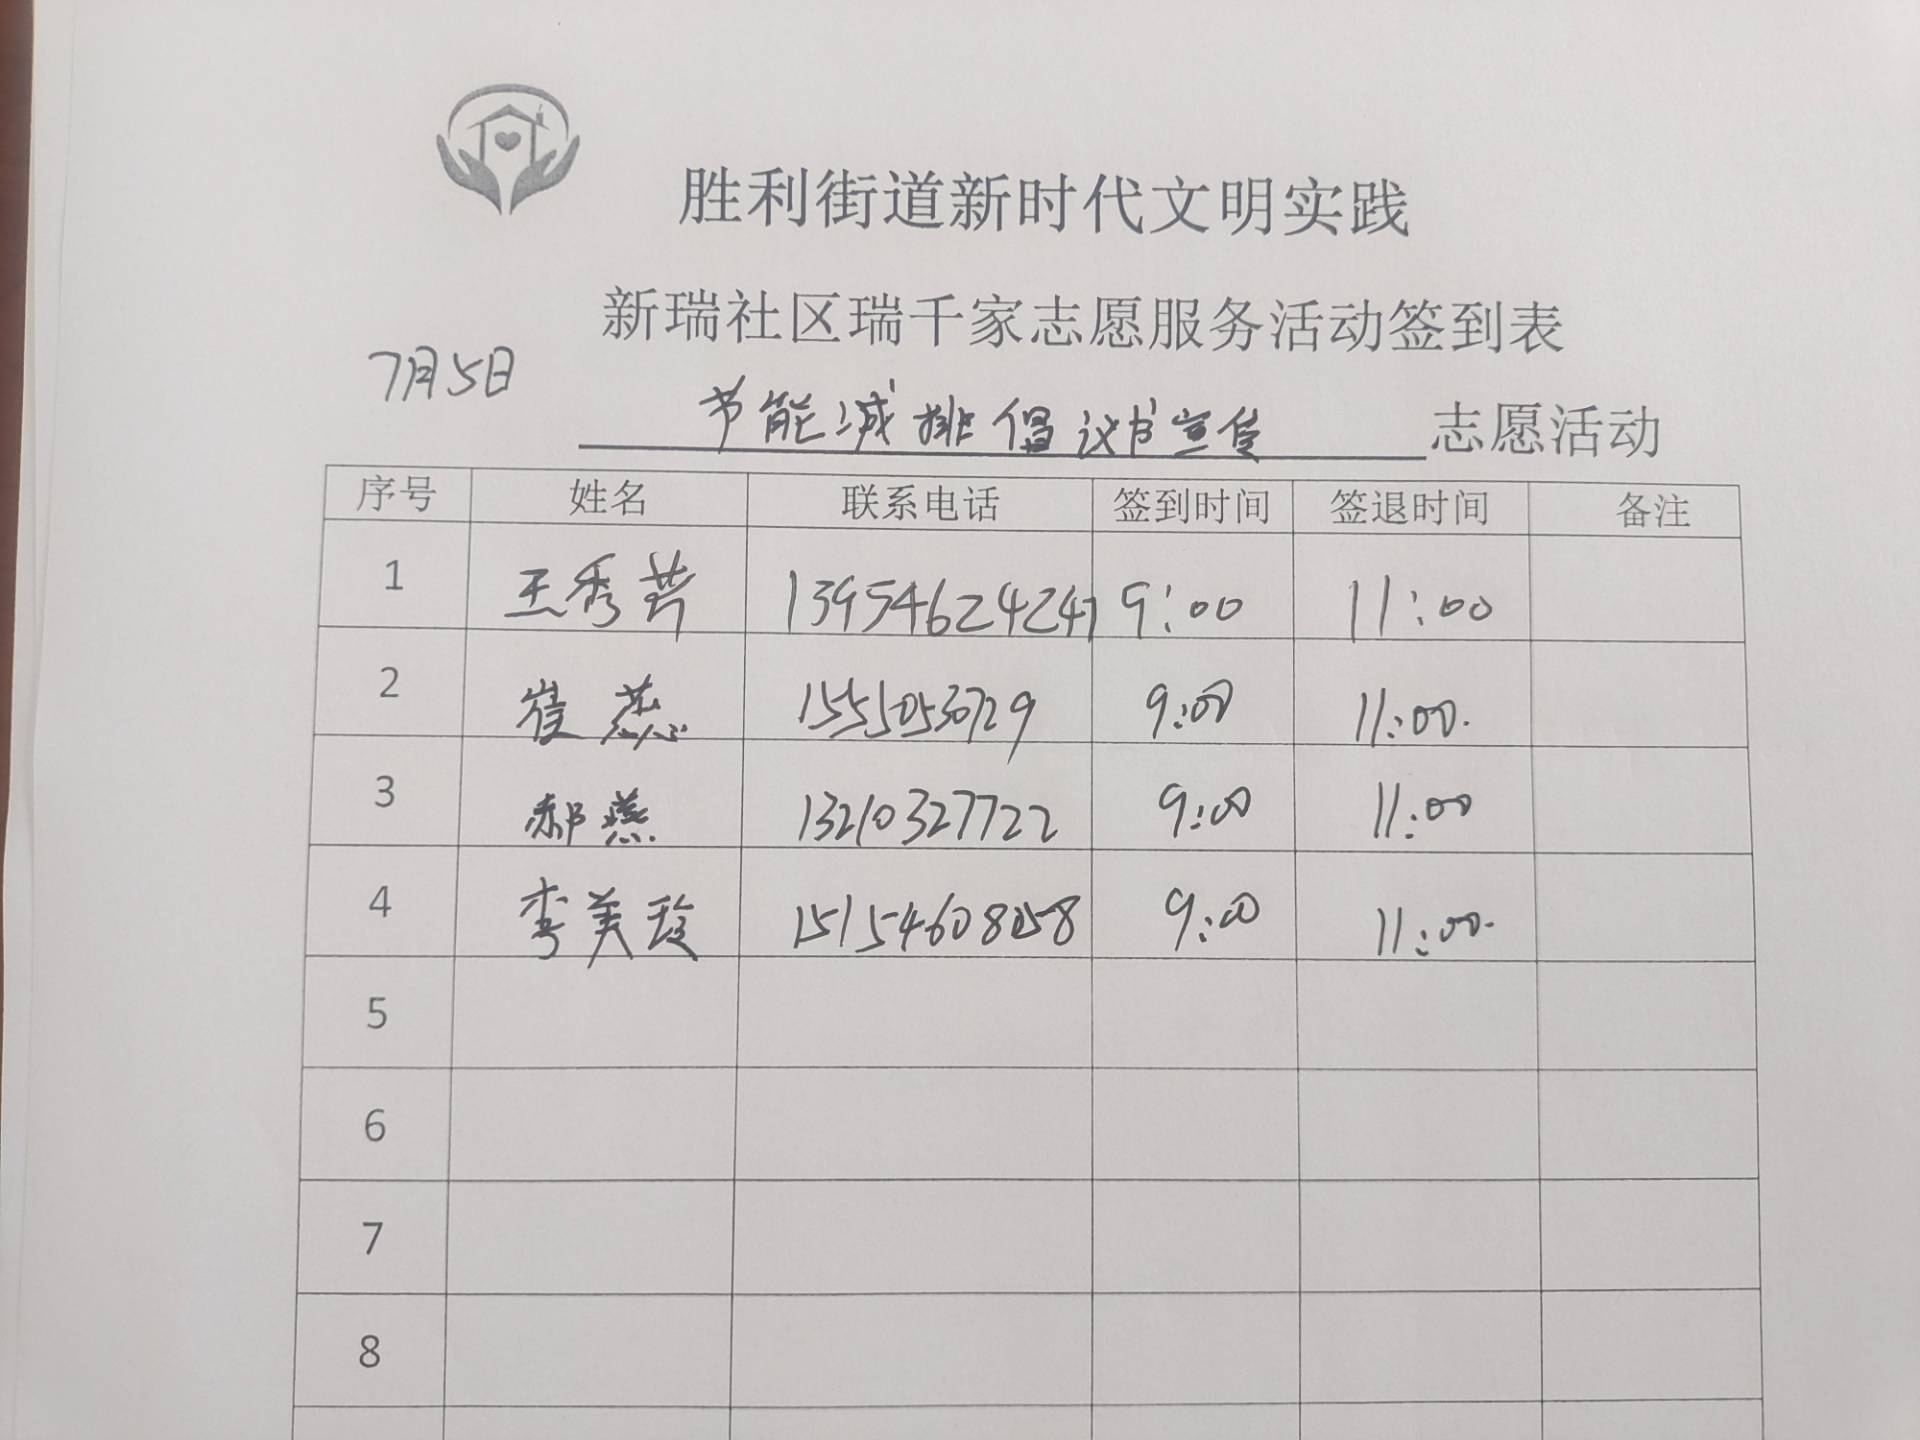 胜利街道新时代文明实践
新瑞社区瑞千家志愿服务活动签到表
7月5日
节能减排倡议书宣传 志愿活动
序号 姓名 联系电话 签到时间 签退时间 备注
1 王秀芹 13954624241 9:00 11:00
2 崔蕊 15551053729 9:00 11:00.
3 郝燕 13210327722 9:00 11:00
4 李美玲 15154608058 9:00 11:00.
5
6
7
8